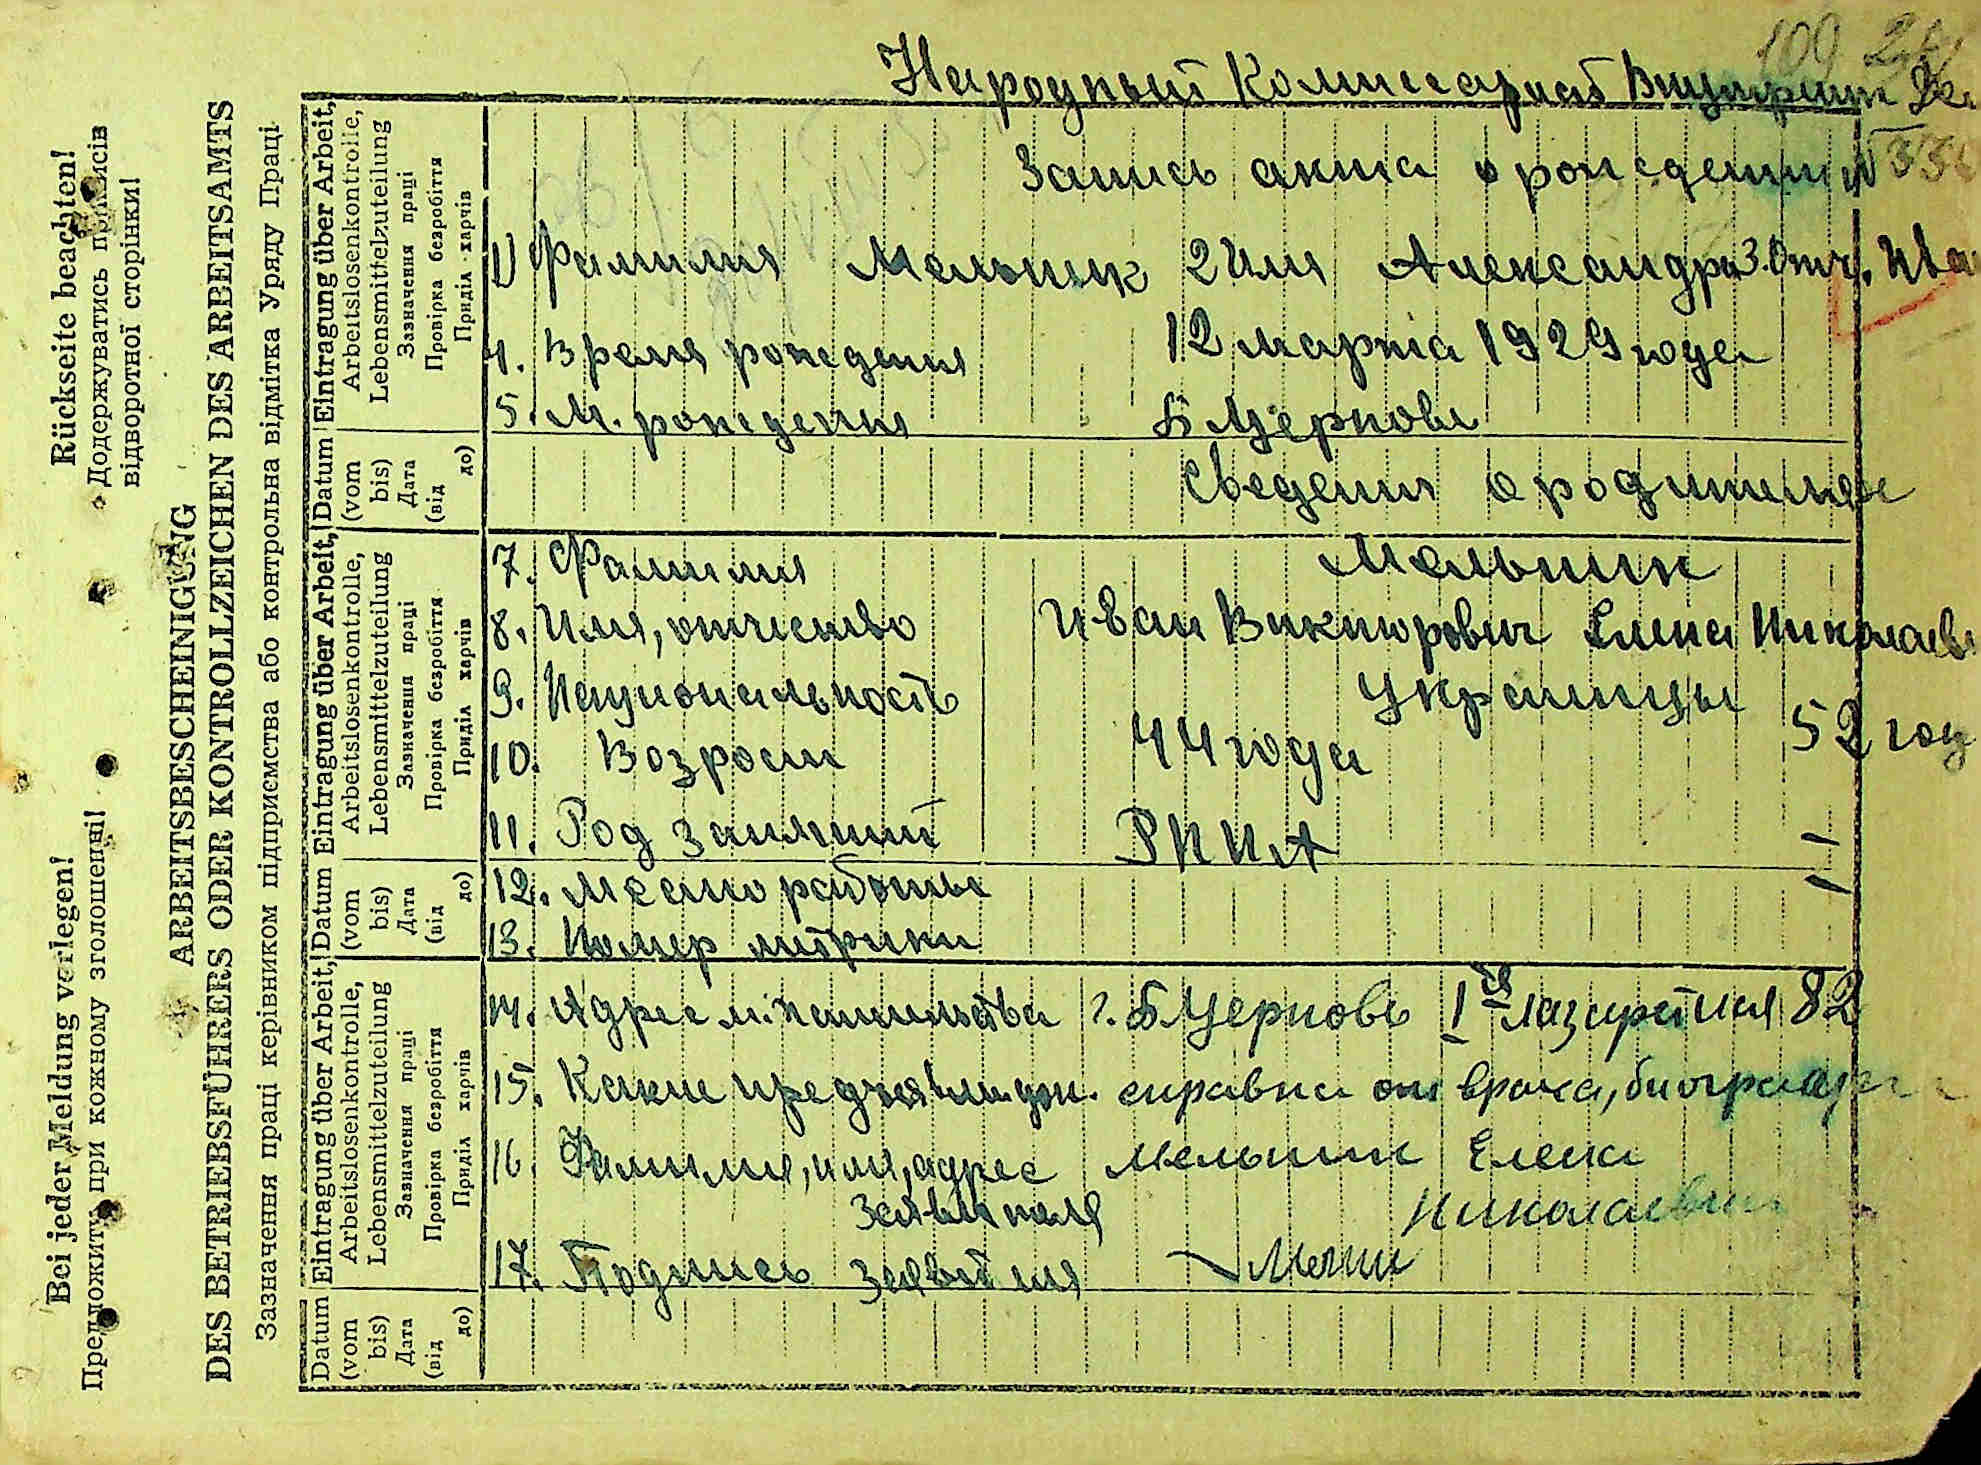 109
Народный Комиссариат Внутрених Дел
Запись акта о рождении № 336
1) Фамилия Мельник 2 Имя Александра 3. Отч. Ива
4. Время рождения 12 марта 1929 года
5. М. рождения Б Церковь
Сведения о родителях
7. Фамилия Мельник
8. Имя, отчество Иван Викторович Елена Николаев
9. Национальность Украинцы
10. Возраст 44 года 52 год
11. Род занятий РККА —
12. Место работы —
13. Номер митрики
14. Адрес м. г. Б Церковь 1ая лазаретная 82
15. Какие предъявлен. док. справка от врача,
16. Фамилия, имя, адрес Мельник Елена
заявителя Николаевна
17. Подпись заявителя
Bei jeder Meldung vorlegen! Rückseite beachten!
Предложити при кожному зголошенні! Додержуватись приписів
відворотної сторінки!
ARBEITSBESCHEINIGUNG
DES BETRIEBSFÜHRERS ODER KONTROLLZEICHEN DES ARBEITSAMTS
Зазначення праці керівником підприємства або контрольна відмітка Уряду Праці
Datum
(vom
bis)
Дата
(від
до)
Eintragung über Arbeit,
Arbeitslosenkontrolle,
Lebensmittelzuteilung
Зазначення праці
Провірка безробіття
Приділ харчів
Datum
(vom
bis)
Дата
(від
до)
Eintragung über Arbeit,
Arbeitslosenkontrolle,
Lebensmittelzuteilung
Зазначення праці
Провірка безробіття
Приділ харчів
Datum
(vom
bis)
Дата
(від
до)
Eintragung über Arbeit,
Arbeitslosenkontrolle,
Lebensmittelzuteilung
Зазначення праці
Провірка безробіття
Приділ харчів